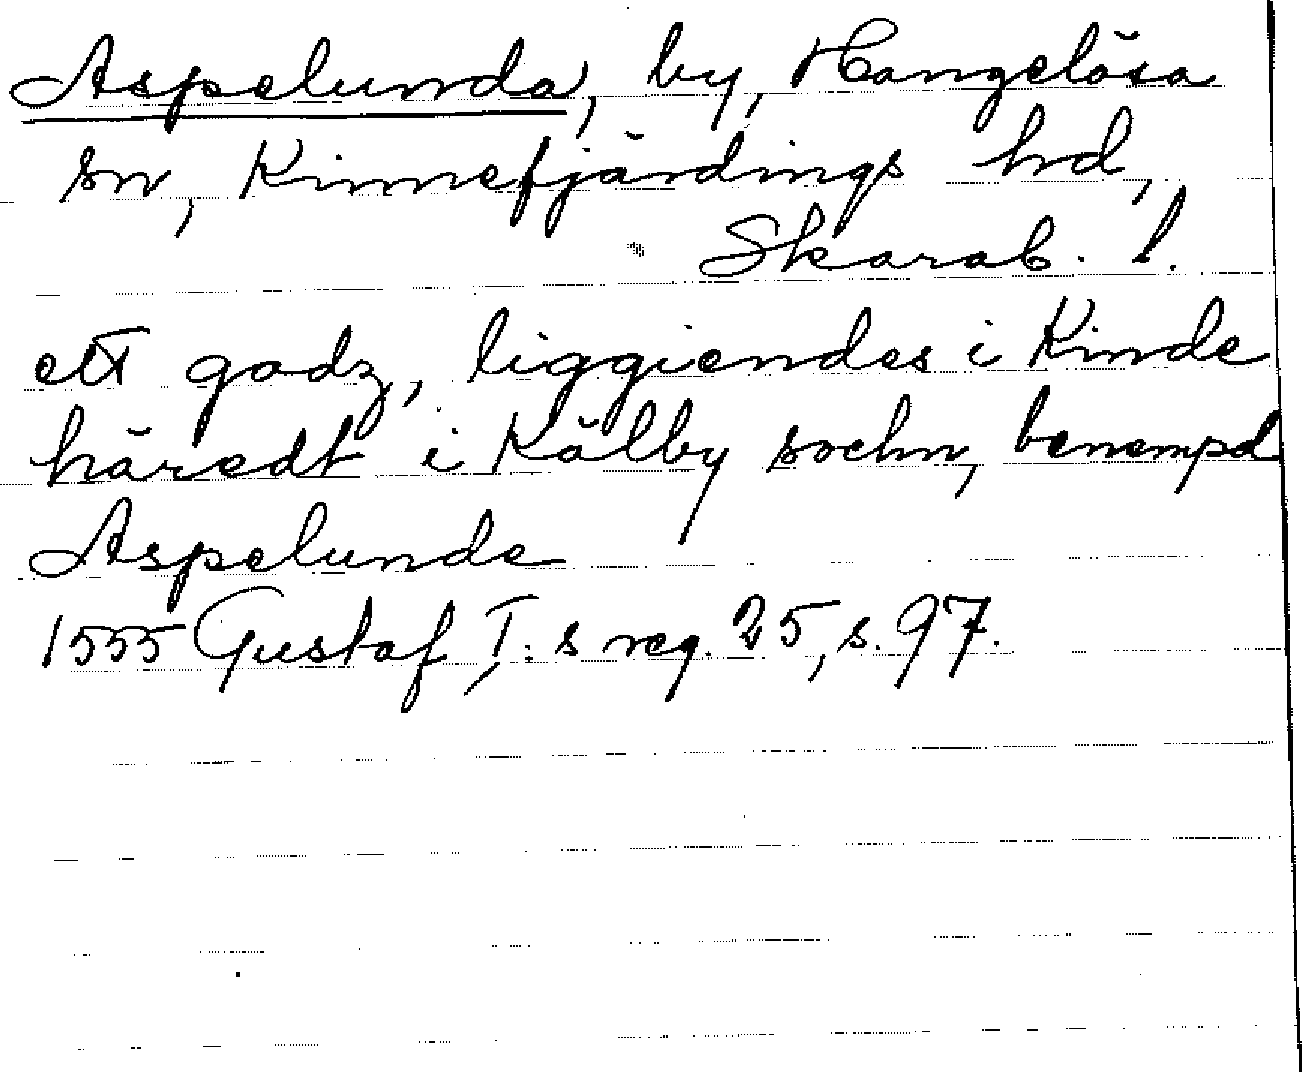 Aspelunda, by, Hangelösa
sn, Kinnefjärdings hd,
Skarab. l.
ett godz, liggiendes i Kinde
häredt i Kälby sochn, benempd
Aspelunde
1555 Gustaf I:s reg. 25, s. 97.